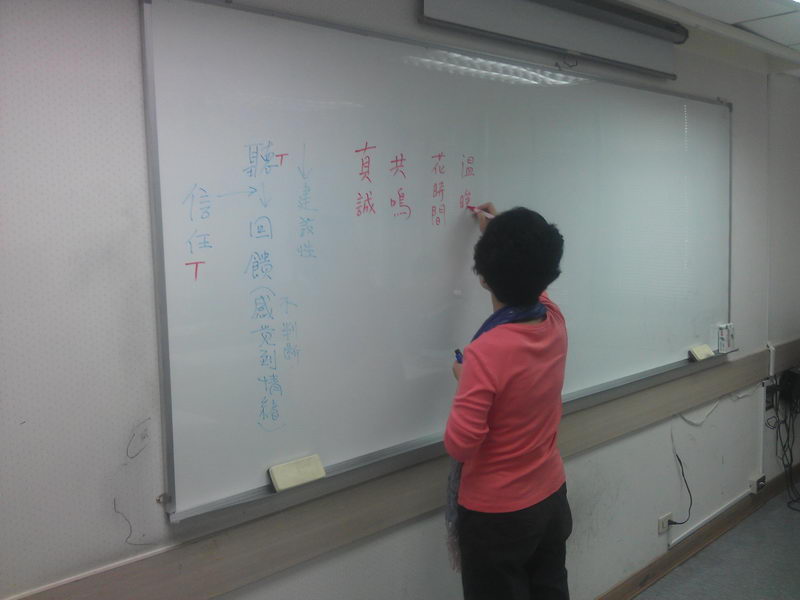 信任 T
聽 T
↓
回饋(感觉到情緒)
↓建設性
不判斷
真誠
共鳴
花時間
溫